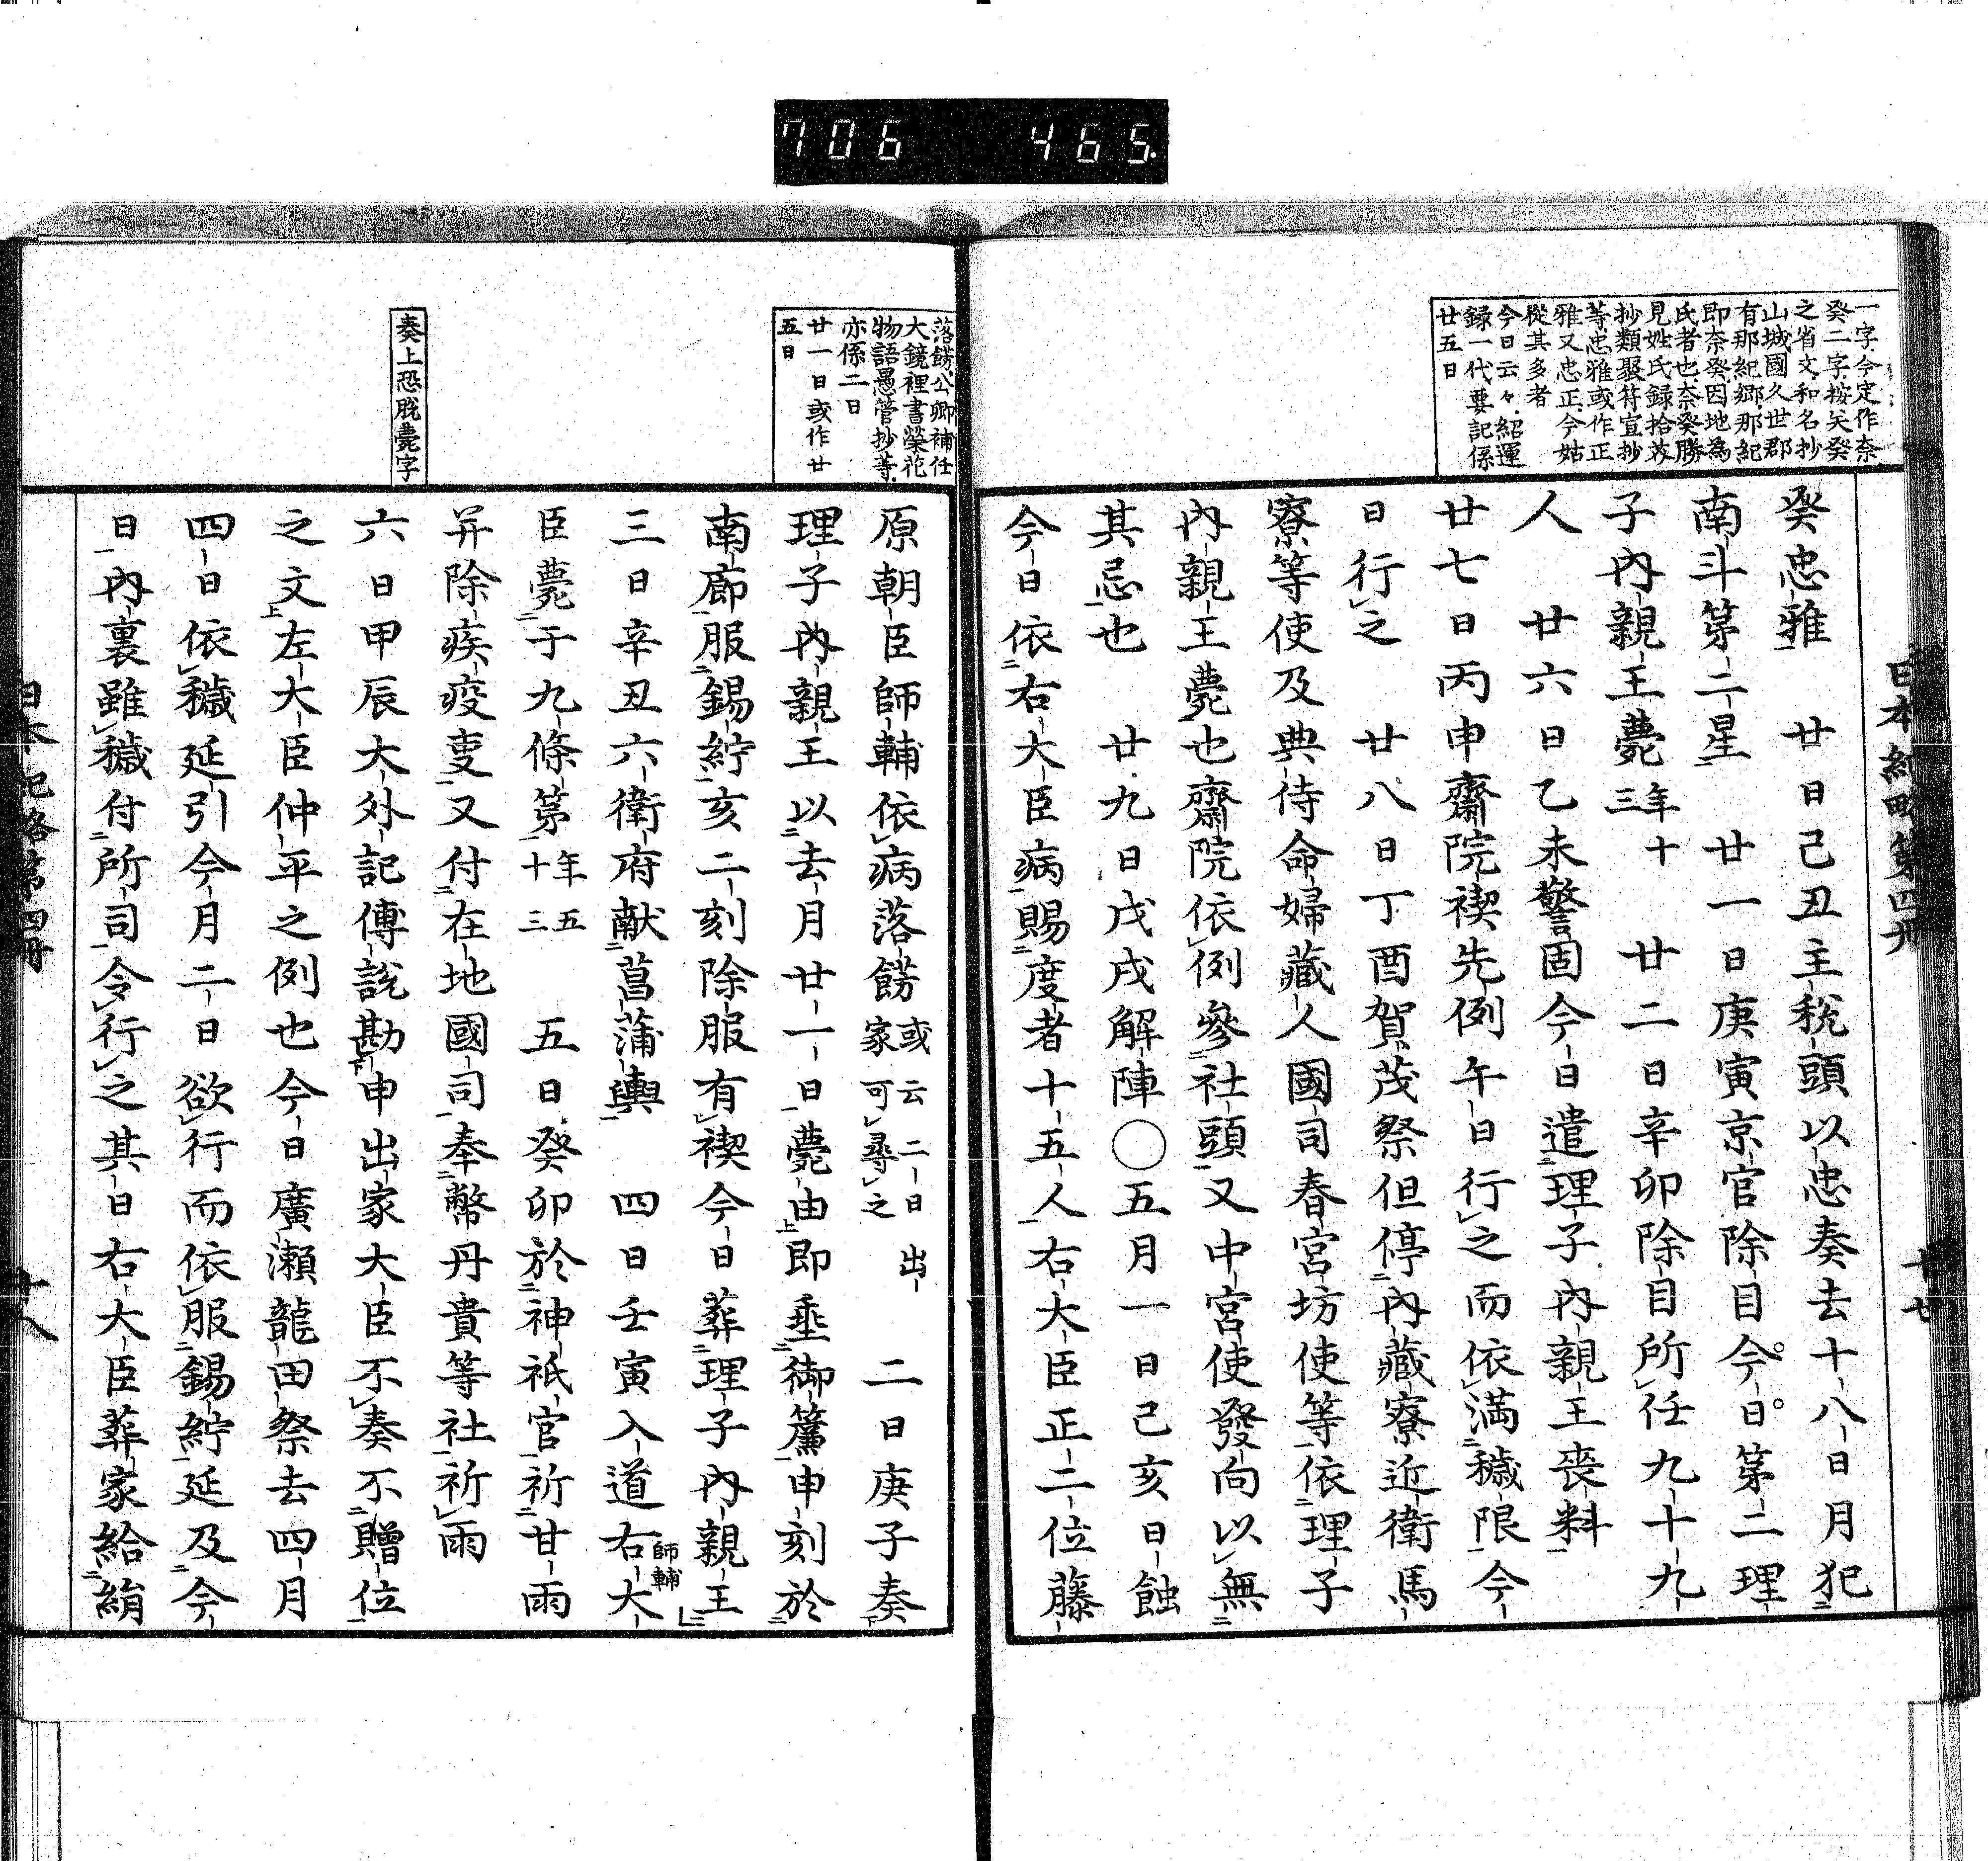 706 465.
一字今定作奈
癸二字按矢癸
之省文和名抄
山城國久世郡
有那紀郷那紀
即奈癸因地為
氏者也奈癸勝
見姓氏録拾芥
抄類聚符宣抄
等忠雅或作正
雅又忠正今姑
從其多者
今日云々紹運
録一代要記係
廿五日
日本紀略第四冊
癸忠雅 廿日己丑主税頭以忠奏去十八日月犯
南斗第二星 廿一日庚寅京官除目今日第二理
子內親王薨年十三 廿二日辛卯除目所任九十九
人 廿六日乙未警固今日遣理子內親王喪料
廿七日丙申齋院禊先例午日行之而依満穢限今
日行之 廿八日丁酉賀茂祭但停內藏寮近衛馬
寮等使及典侍命婦藏人國司春宮坊使等依理子
內親王薨也齋院依例參社頭又中宮使發向以無
其忌也 廿九日戊戌解陣○五月一日己亥日蝕
今日依右大臣病賜度者十五人右大臣正二位藤
落餝公卿補任
大鏡裡書榮花
物語愚管抄等
亦係二日
廿一日或作廿
五日
奏上恐脱薨字
原朝臣師輔依病落餝或云二日出家可尋之 二日庚子奏
理子內親王以去月廿一日薨由即垂御簾申刻於
南廊服錫紵亥二刻除服有禊今日葬理子內親王
三日辛丑六衛府献菖蒲輿 四日壬寅入道右大
師輔
臣薨于九條第年五十三 五日癸卯於神祇官祈甘雨
并除疾疫叓又付在地國司奉幣丹貴等社祈雨
六日甲辰大外記傅說勘申出家大臣不奏不贈位
之文左大臣仲平之例也今日廣瀬龍田祭去四月
四日依穢延引今月二日欲行而依服錫紵延及今
日內裏雖穢付所司令行之其日右大臣葬家給絹
日本紀略第四冊
十八